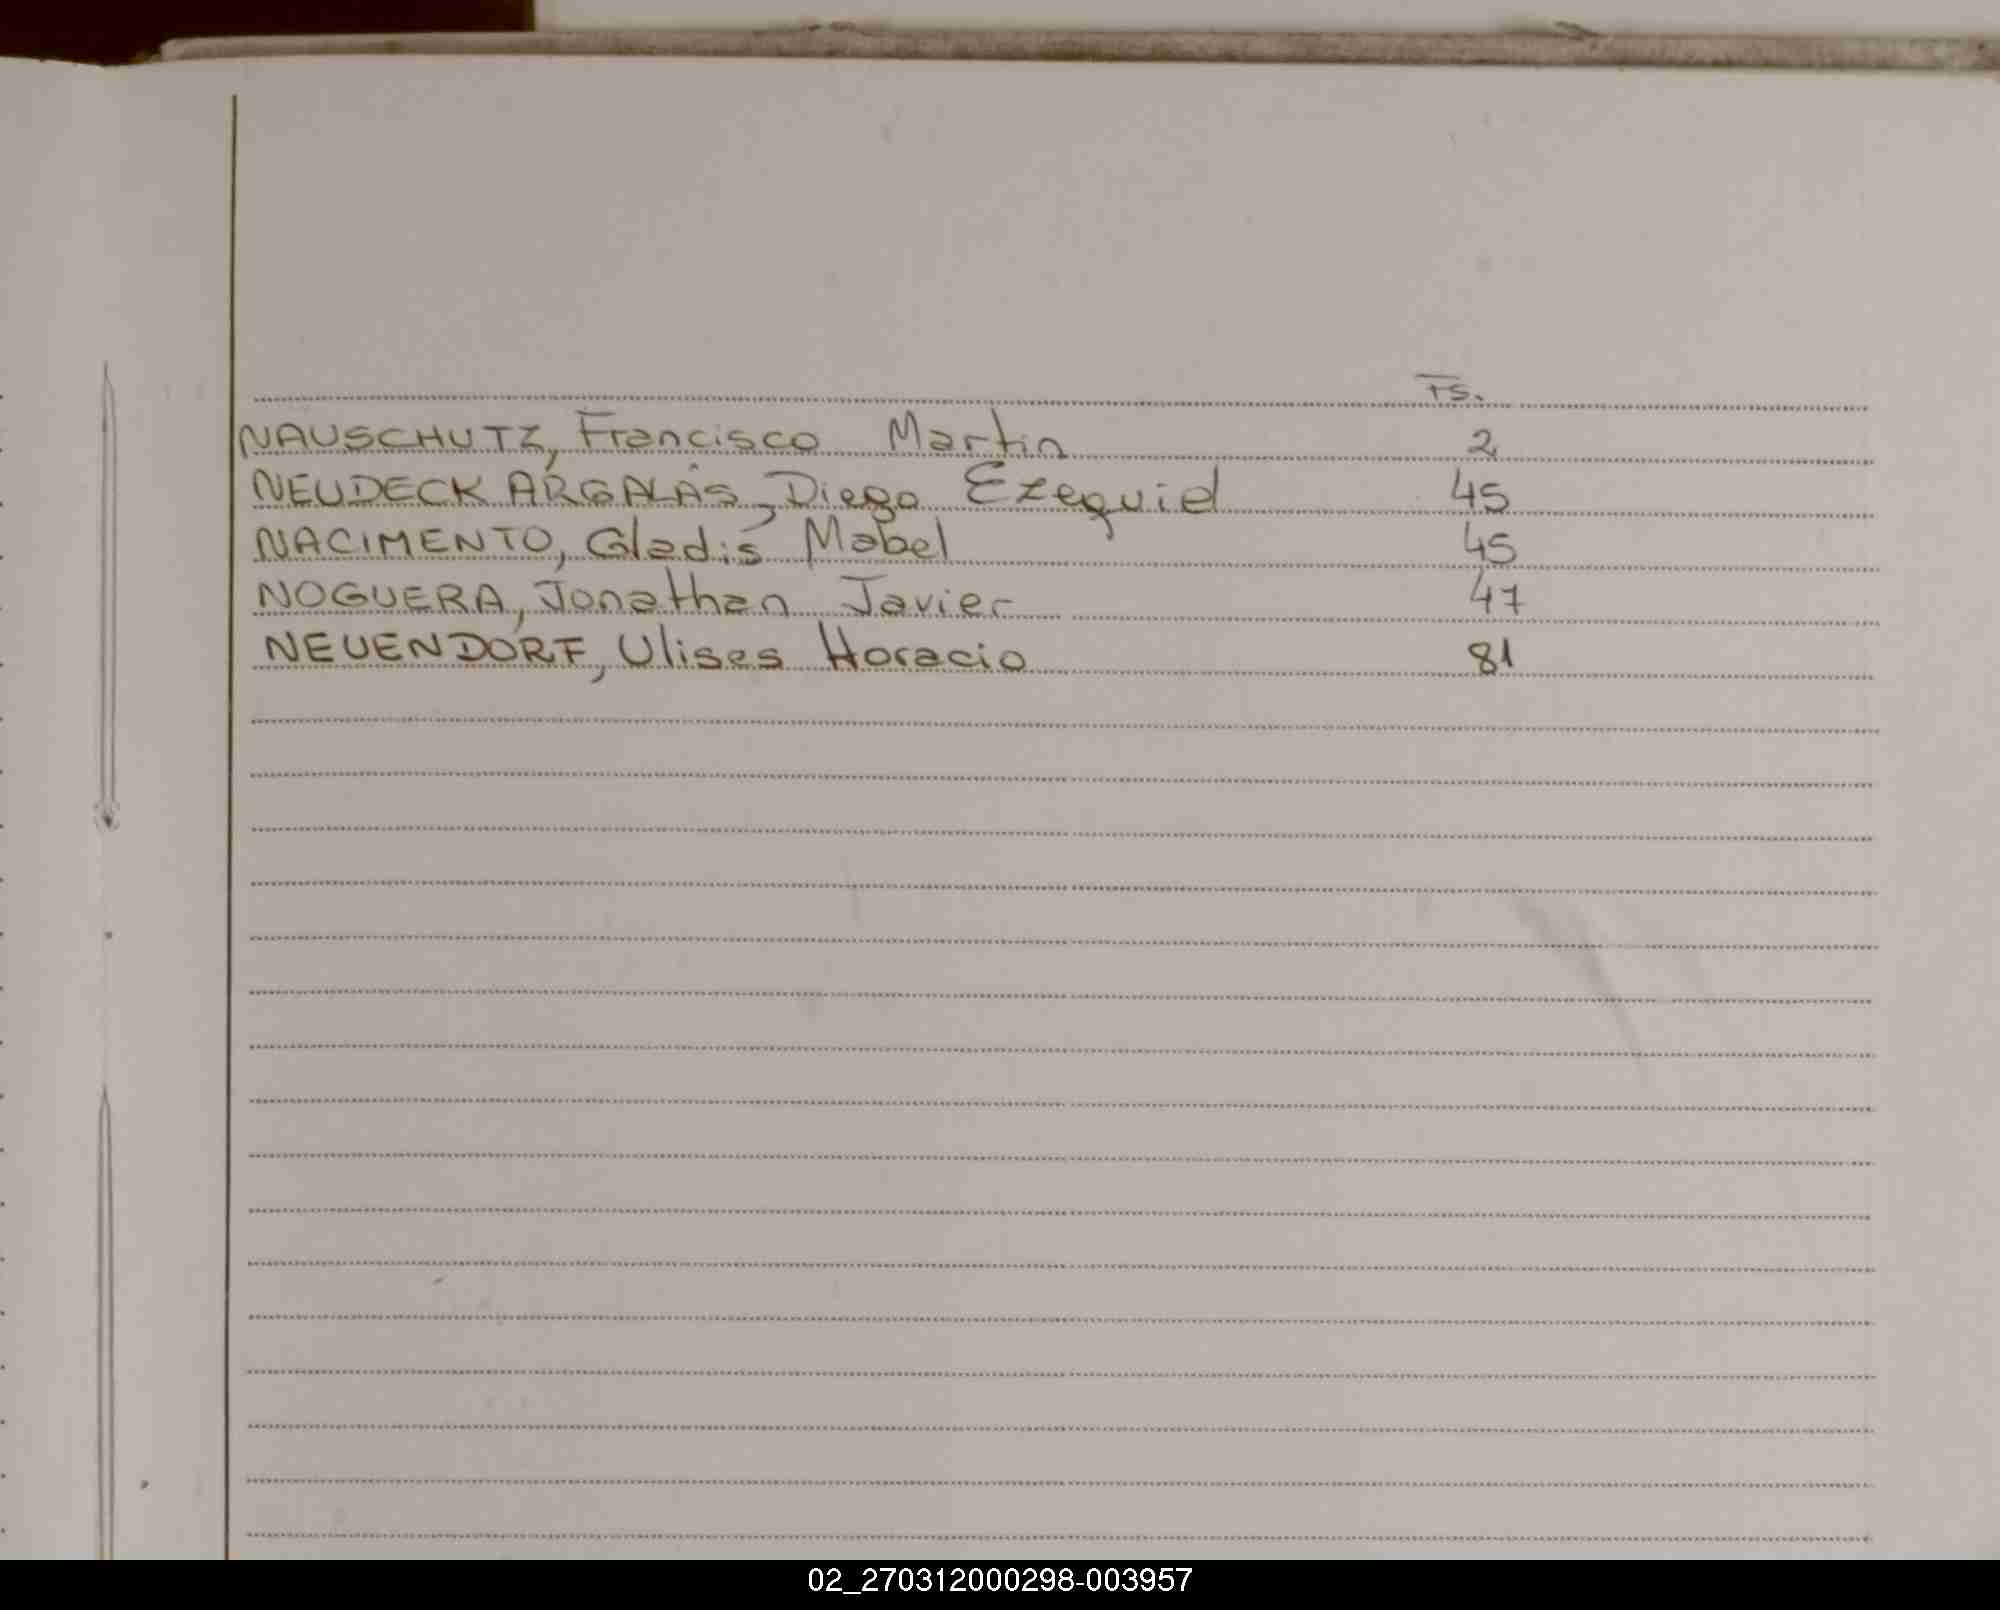 Fs.
NAUSCHUTZ, Francisco Martin 2
NEUDECK ARGALÁS, Diego Ezequiel 45
NACIMENTO, Gladis Mabel 45
NOGUERA, Jonathan Javier 47
NEUENDORF, Ulises Horacio 81
02_270312000298-003957